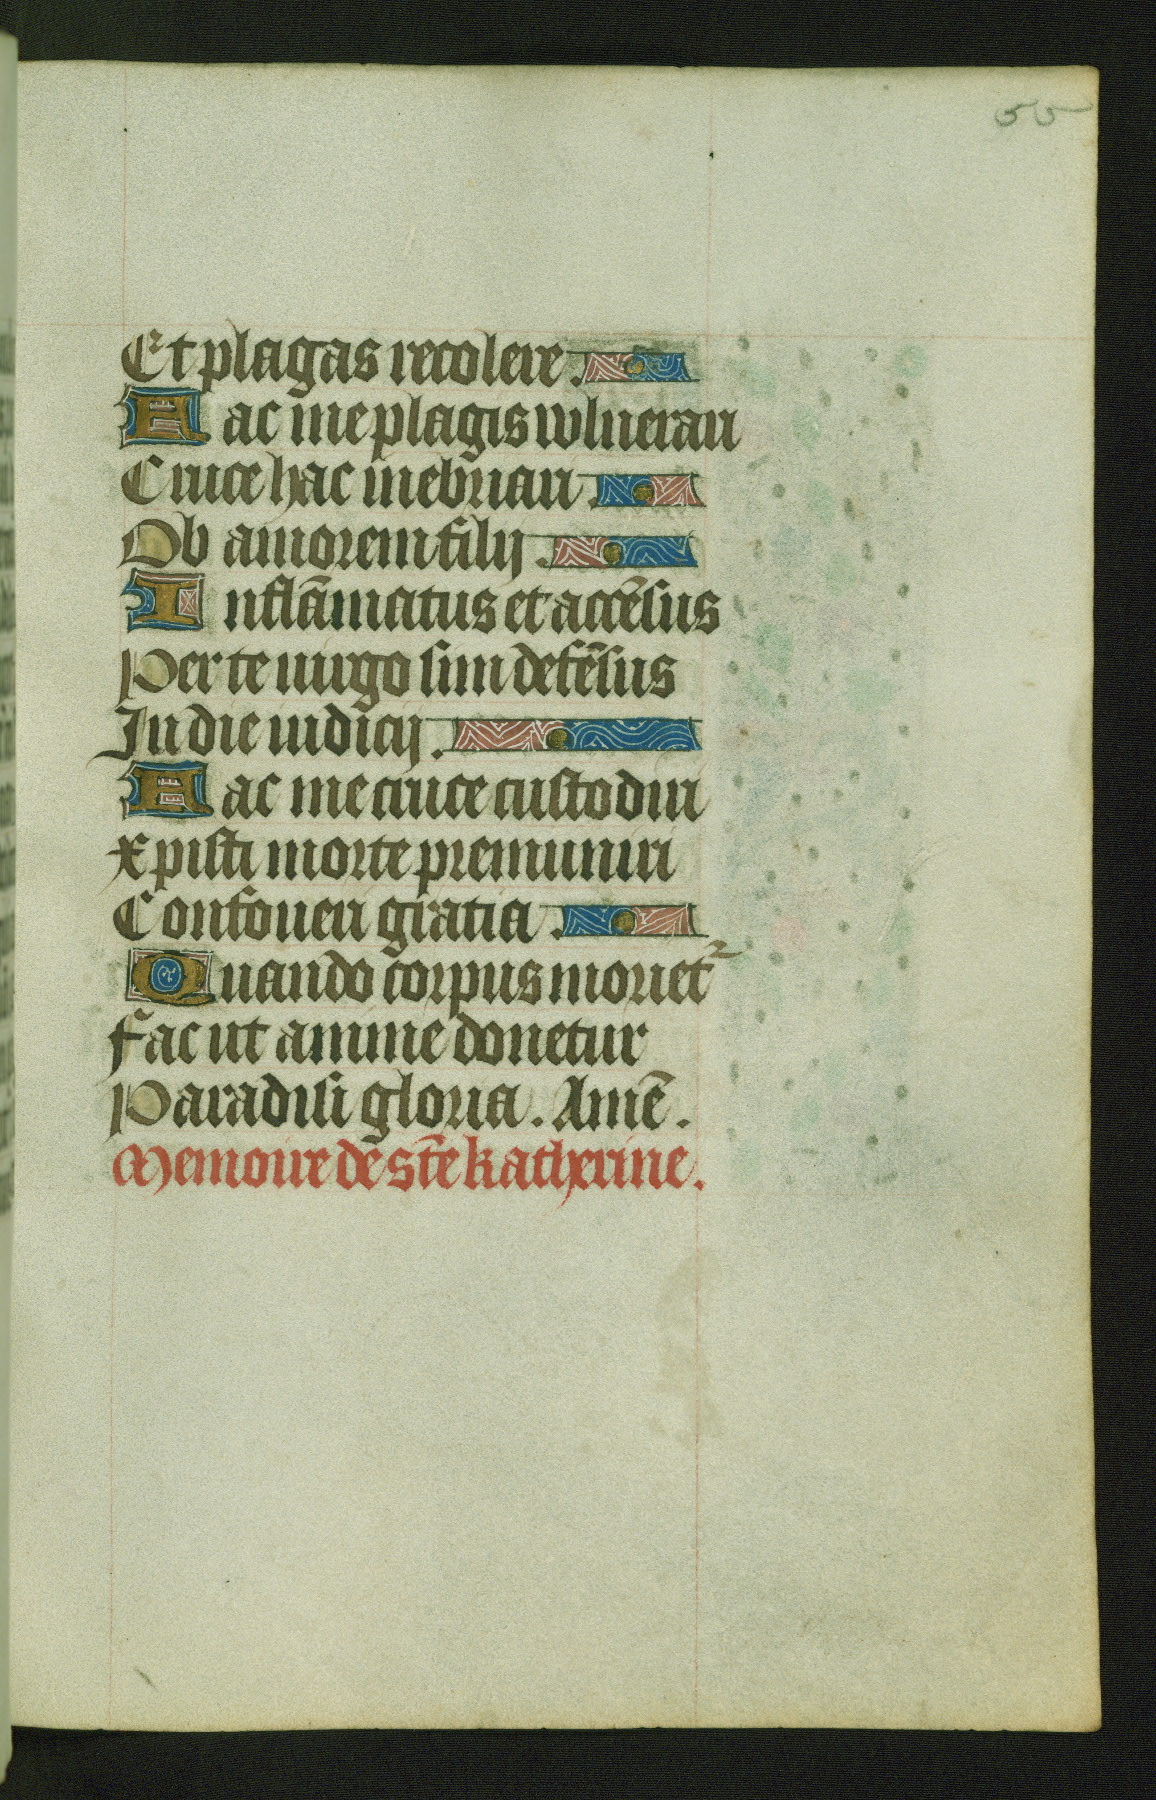 55
Et plagas recolere.
Hac me plagis wlnerari
Cruce hac inebriari.
Ob amorem filij.
Inflāmatus et accēsus
Per te uirgo sim defēsus
In die iudicij.
Hac me cruce custodiri
xpisti morte premuniri
Confoueri gratia.
Quando corpus moriet᷑
Fac ut anime donetur
Paradisi gloria. Amē.
Memoire de st̄e katherine.